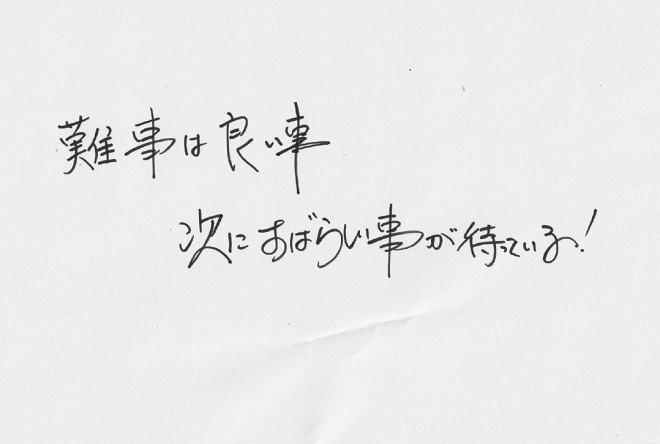 難事は良い事
次にすばらしい事が待っている!